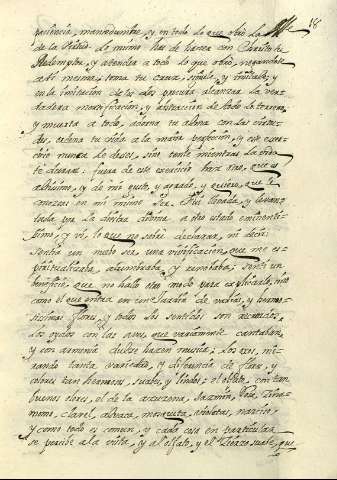 18
paciencia, mansedumbre, y en todo lo que obró la
de la Virtud. lo mismo has de hacer con Christo tu
Redemptor, y atender a todo lo que obró, negandote
a ti misma; toma tu cruz, siguele, y imitale; y
en la imitacion de los dos procura alcanzar la ver-
dadera mortificacion, y abstraccion de todo lo terreno,
y muerta a todo, adorna tu alma con las virtu-
des, adorna tu
a la maior perfeccion, y este exer-
cicio nunca le dexes, sino tenle mientras la vida
te durare. fuera de este exercicio hará otro, que es
altissimo, y de mi gusto, y agrado, y quiero, que te
en mi mismo Ser. Fui llamada, y levan-
tada por la diestra divina a otro estado eminenti-
ssimo, y vi, lo que no sabré declarar, ni decir:
sentia un modo ser una vivificacion, que me es-
piritualizaba, alumbraba, y renobaba; sentí un
beneficio, que no hallo otro modo para explicarlo, sino
como el que entra en un
de varias, y hermo-
sissimas flores, y todos los sentidos son
los oydos con las aves, que variamente cantaban,
y con armonia dulce hacen musica, los ojos, mi-
rando tanta variedad, y diferencia de flores, y
colores tan hermosas, suaves, y lindas: el olfato, con tan
buenos olores, el de la azuzena, Jazmin, Rosa, Cina-
momo, clavel, albaca, mosqueta, violetas, narciso,
y como todo es comun, y cada cosa en particular
se percibe a la vista, y al olfato, y el
suave, que